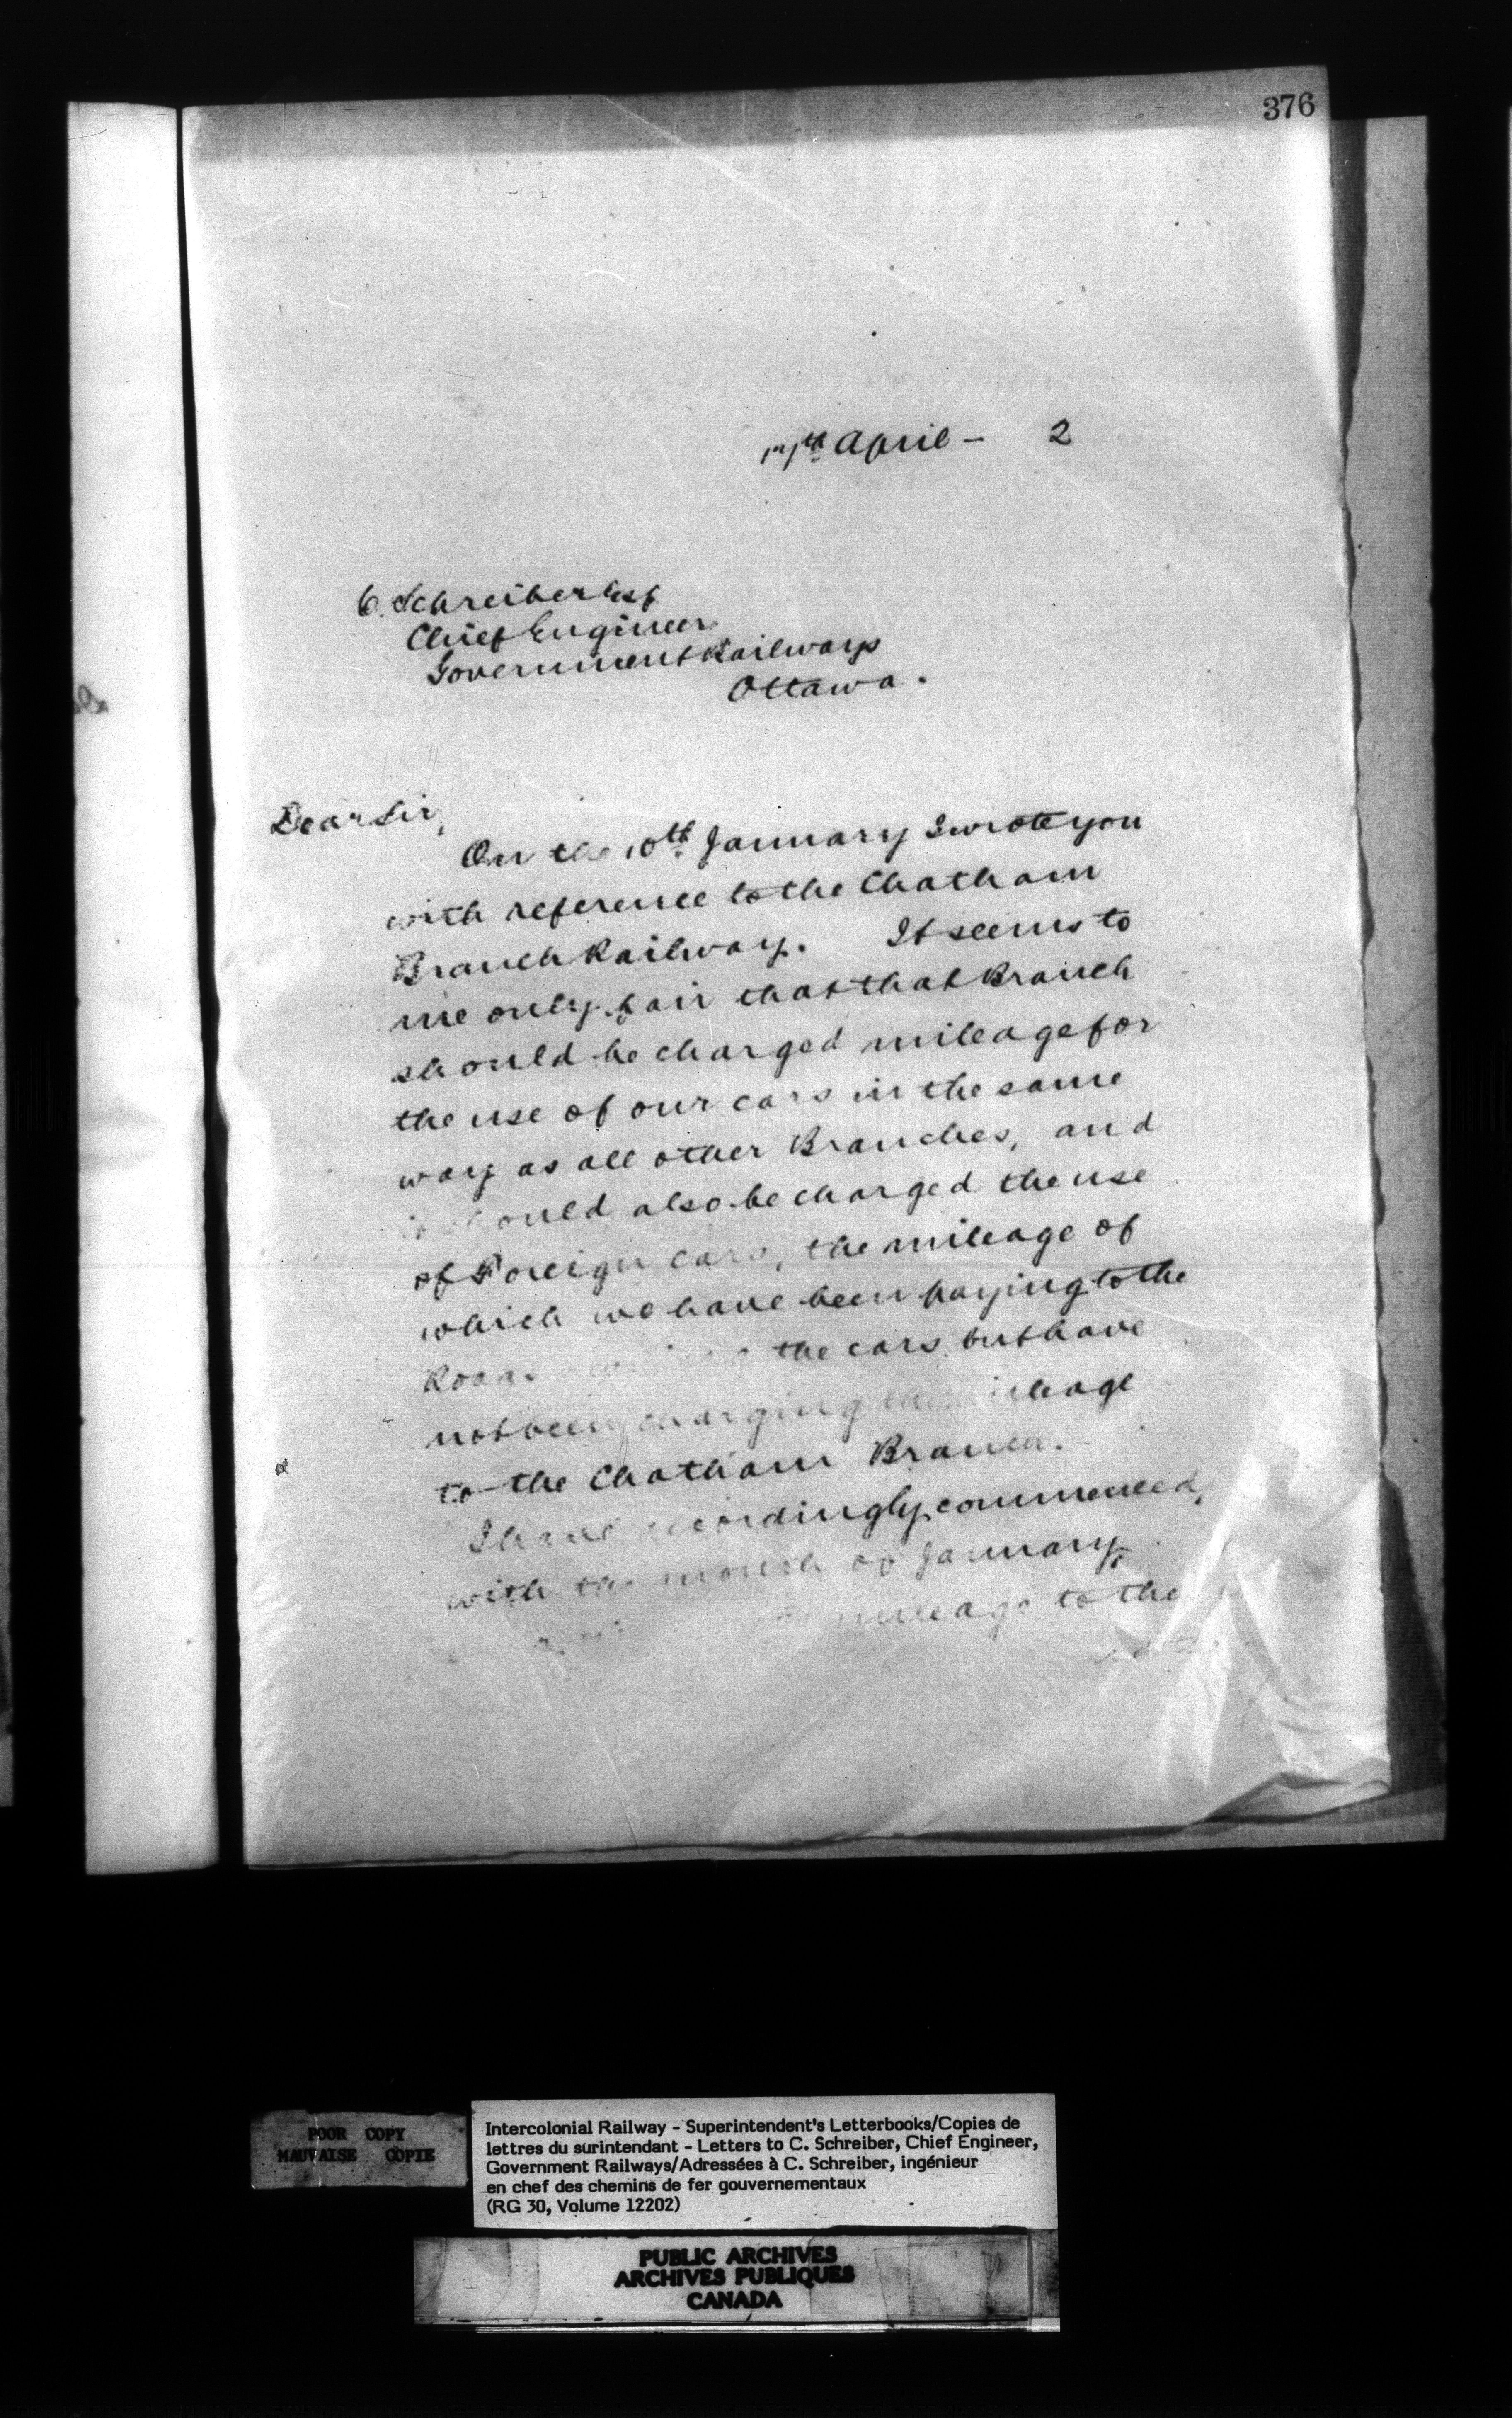 376
April - 2
C. Schreiber Esq
Chief Engineer
Government Railways
Ottawa.
Dear Sir,
On the 10th January I wrote you
with reference to the Chatham
Branch Railway. It seems to
me only fair that that Branch
should be charged mileage for
the use of our cars in the same
way as all other Branches, and
it should also be charged the use
of Foreign cars, the mileage of
which we have been paying to the
the cars but have
not been charging mileage
to the Chatham Branch.
I have accordingly commenced,
with the month of January,
mileage to the
POOR COPY
MAUVAISE COPIE
Intercolonial Railway - Superintendent's Letterbooks/Copies de
lettres du surintendant - Letters to C. Schreiber, Chief Engineer,
Government Railways/Adressées à C. Schreiber, ingénieur
en chef des chemins de fer gouvernementaux
(RG 30, Volume 12202)
PUBLIC ARCHIVES
ARCHIVES PUBLIQUES
CANADA